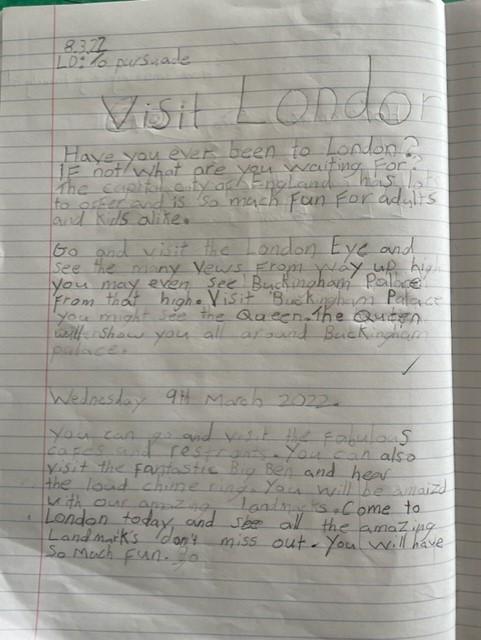 8.3.22
LO: To pursuade
Visit London
Have you ever been to London?
If not what are you waiting for?
The capital city of England has lots
to offer and is so much fun for adults
and kids alike.
Go and visit the London Eye and
see the many vews from way up high
you may even see Buckingham Palace
from that high. Visit Buckingham Palace
you might see the Queen. The Queen
will show you all around Buckingham
palace.
Wednesday 9th March 2022.
You can go and visit the fabulous
cafes and restrants. You can also
visit the fantastic Big Ben and hear
the loud chime ring. You will be amaizd
with our amazing landmarks. Come to
London today and see all the amazing
Landmarks don't miss out. You will have
so much fun. go